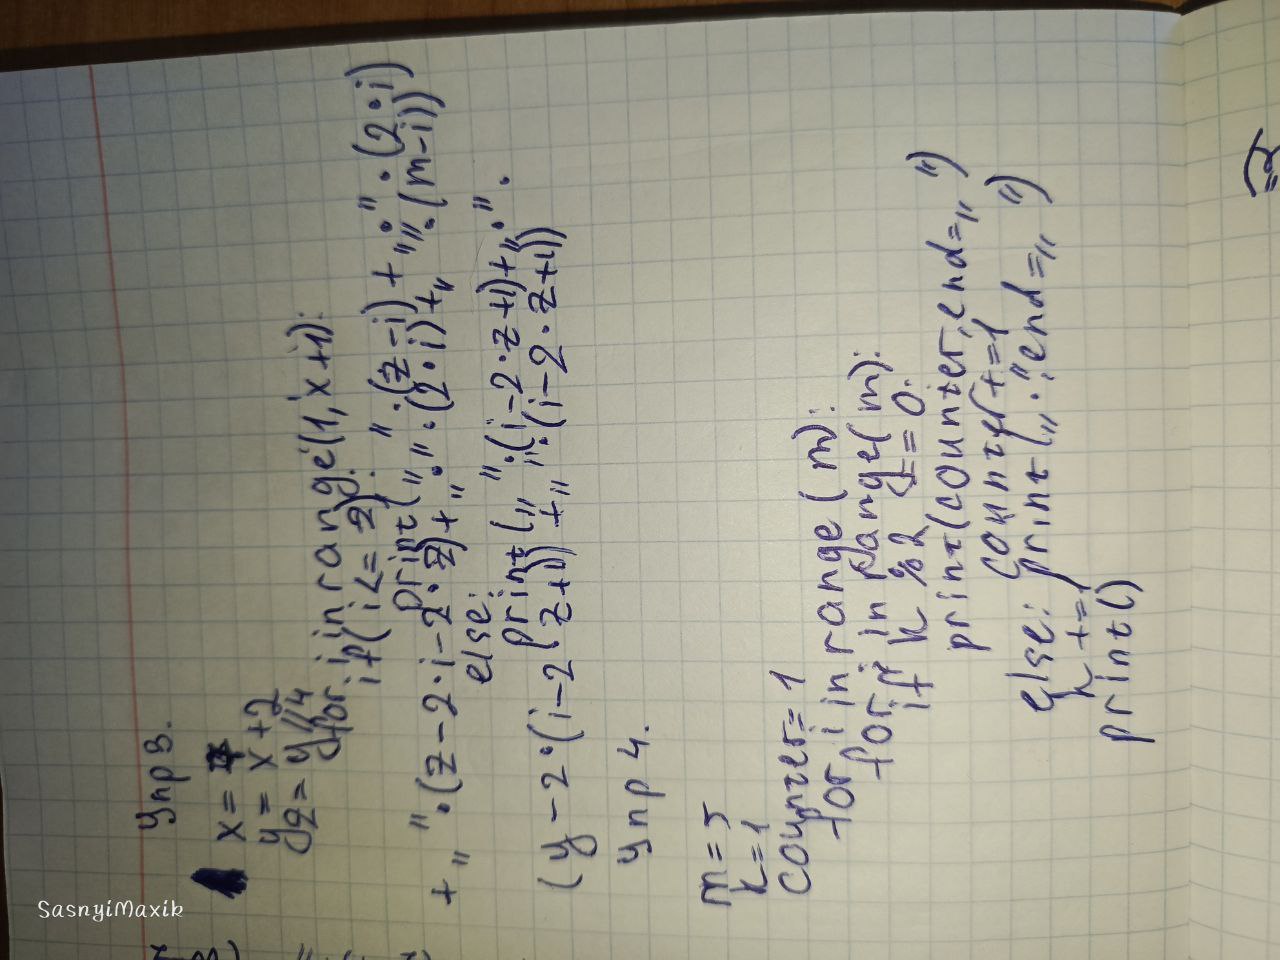 Упр 3.
x =
y = x + 2
z = y//4
for i in range(1, x+1):
if(i <= z):
print(„ ”·(z-i) + „·”·(2·i)
+ „ ”·(z-2·i-2·z)+„·”·(2·i)+„ ”·(m-i))
else:
print(„ ”·(i-2·z+1)+„·”·
(y-2·(i-2 z+1)) +„ ”·(i-2·z+1))
Упр 4.
m = 5
k = 1
counter = 1
for i in range(m):
for in range(m):
if k % 2 == 0:
print(counter, end=„ ”)
counter += 1
else: print(„·”, end=„ ”)
k += 1
print()
SasnyiMaxik